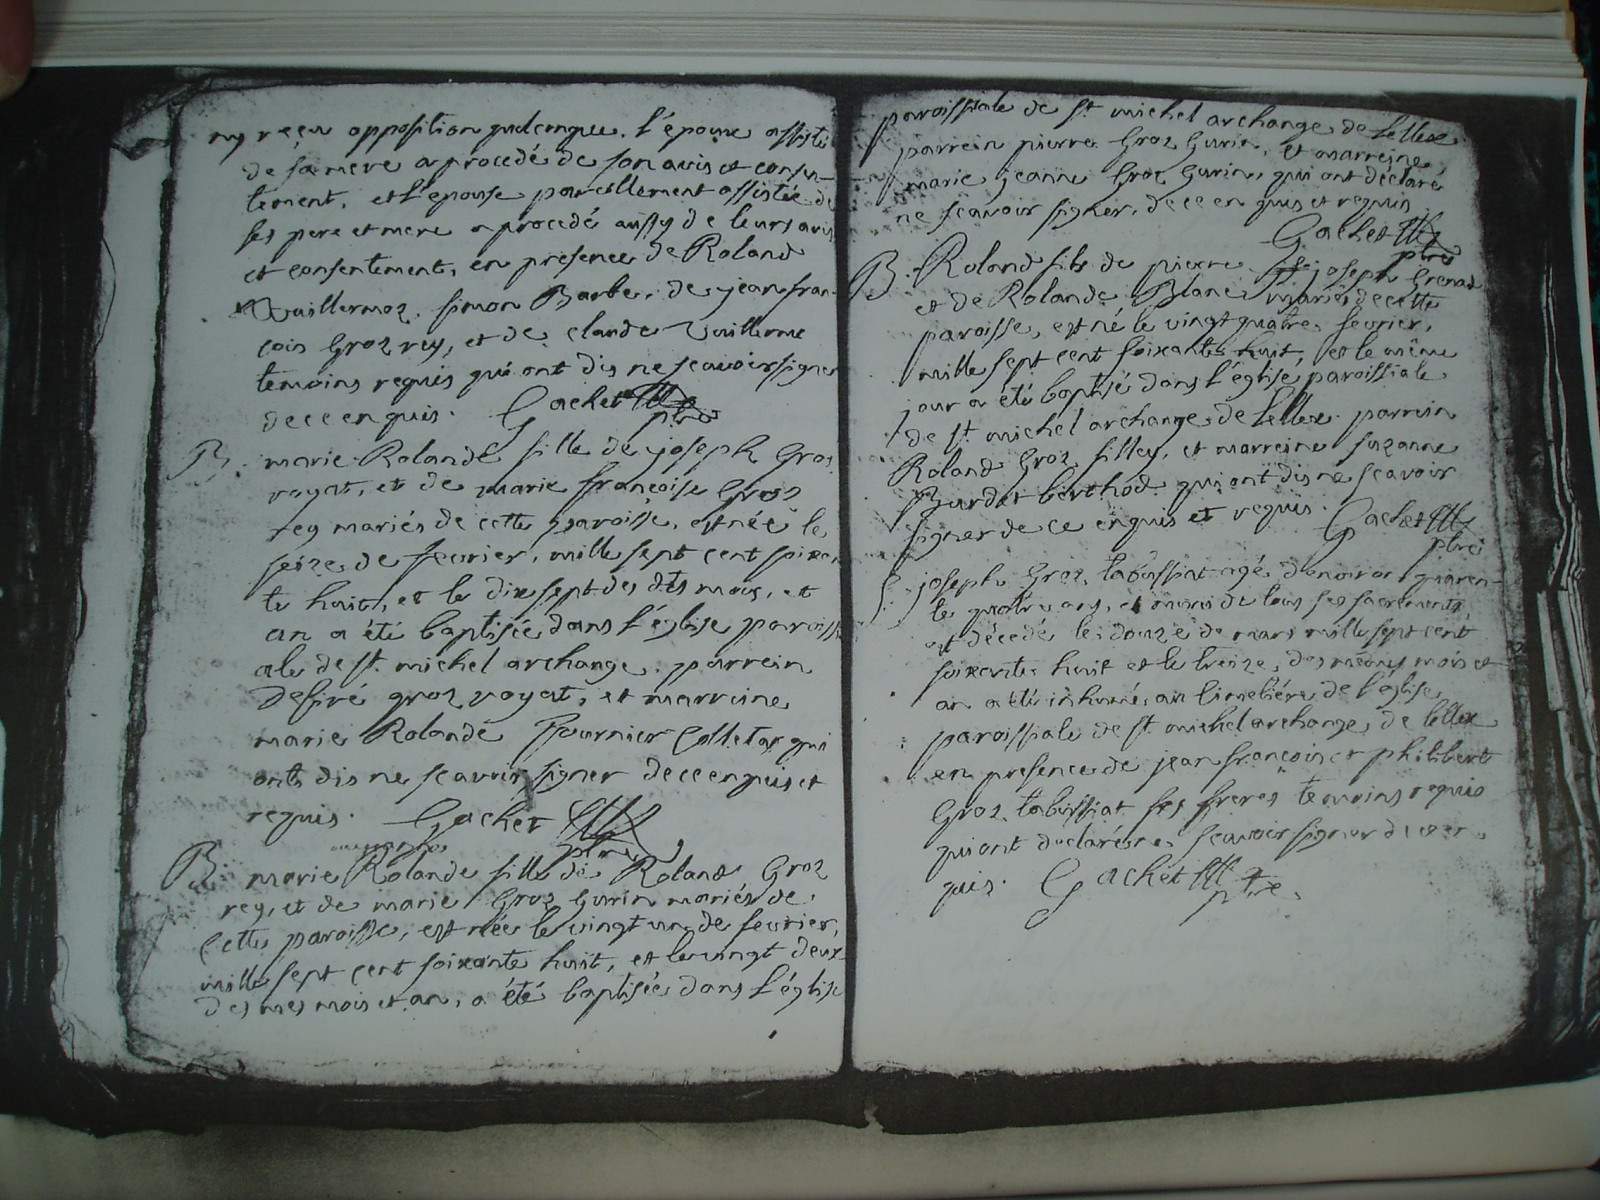 ny reçu opposition quelconque. l'epoux assisté
de sa mere a procedé de son avis et consen-
tement, et l'epouse pareillement assistée de
ses pere et mere a procedé aussy de leurs avis
et consentement, en presence de Roland
Vuillermoz. simon Barbe, de jean fran-
çois Groz rey, et de claude Vuillerme
temoins requis qui ont dis ne scavoir signer
de ce enquis. Gachet
ptre
B. marie Rolande fille de joseph Groz
voyat, et de marie françoise Groz
rey mariés de cette paroisse, est née le
seize de fevrier, mille sept cent soixan
te huit, et le dixsept des dits mois, et
an a été baptisée dans l'église paroissi
ale de st. michel archange. parrein
desiré groz voyat, et marreine
marie Rolande Fournier Colletaz qui
ont dis ne scavoir signer de ce enquis et
requis. Gachet
ptre
B. marie Rolande fille de Roland Groz
rey, et de marie Groz Gurin mariés de
cette paroisse, est née le vingt un de fevrier,
mille sept cent soixante huit, et le vingt deux
des mes mois et an, a été baptisée dans l'église
paroissiale de st. michel archange de Lellex
parrein pierre Groz Gurin, et marreine
marie jeanne Groz Gurin, qui ont déclaré
ne scavoir signer, de ce enquis et requis
Gachet
ptre
B. Roland fils de pierre joseph Grenard
et de Rolande Blanc mariés de cette
paroisse, est né le vingt quatre fevrier,
mille sept cent soixante huit, et le même
jour a été baptisé dans l'église paroissiale
de st. michel archange de Lellex. parrein
Roland Groz filley, et marreine suzanne
Burdet berthod qui ont dis ne scavoir
signer de ce enquis et requis. Gachet
ptre
S. joseph Groz tabussiat agé d'environ quaren-
te quatre ans, et muni de tous ses sacrements
est décedé le douze de mars mille sept cent
soixante huit et le treize, des mêmes mois et
an a été inhumé, au cimetière de l'église
paroissiale de st. michel archange de lellex
en presence de jean françois et philibert
Groz tabussiat ses freres temoins requis
qui ont declaré ne scavoir signer de ce en
quis. Gachet
ptre.